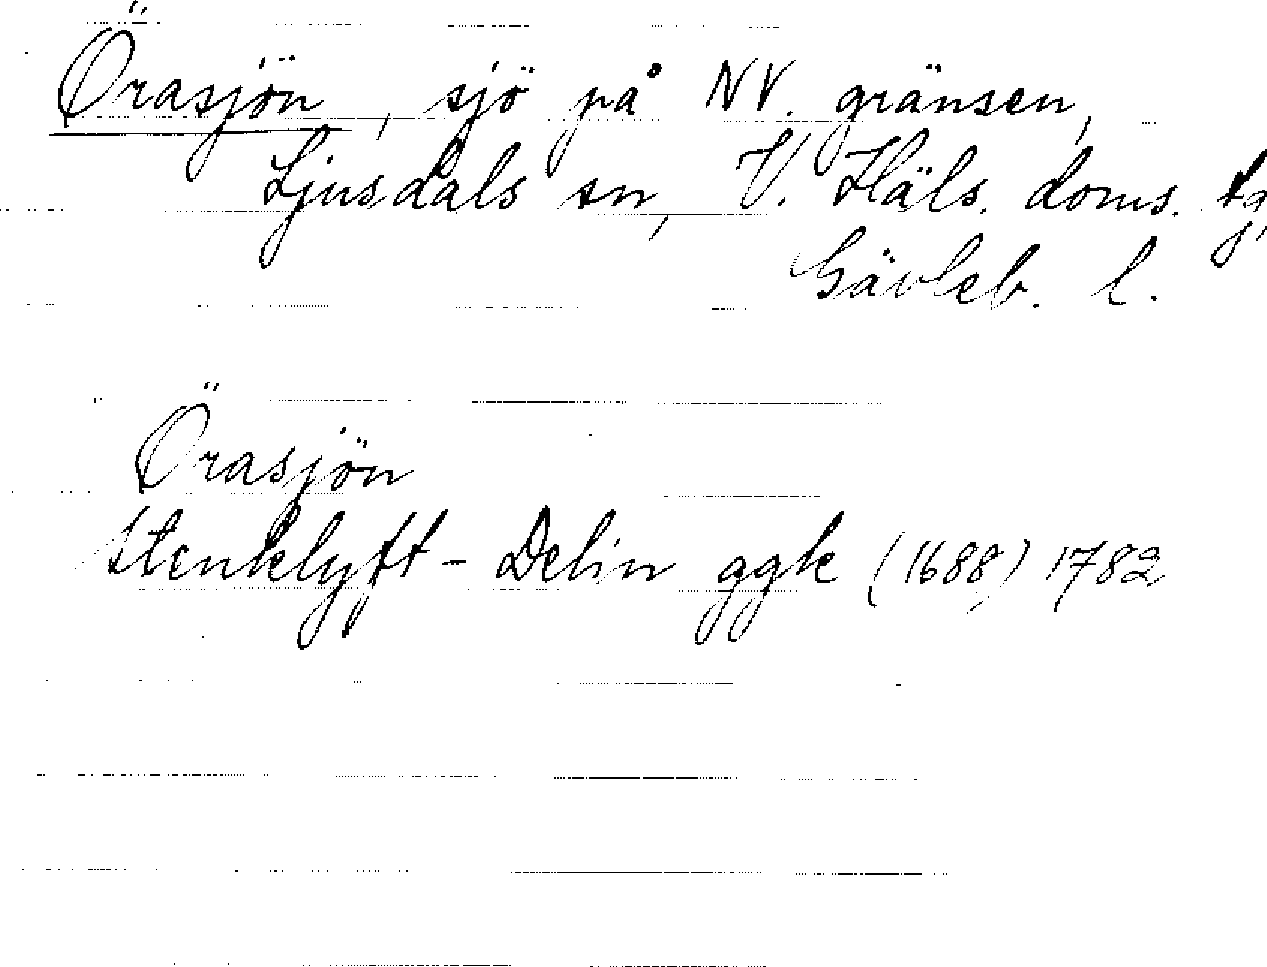 Örasjön, sjö på NV. gränsen,
Ljusdals sn, V. Häls. doms. tg,
Gävleb. l.
Örasjön
Stenklyft-Delin ggk (1688) 1782